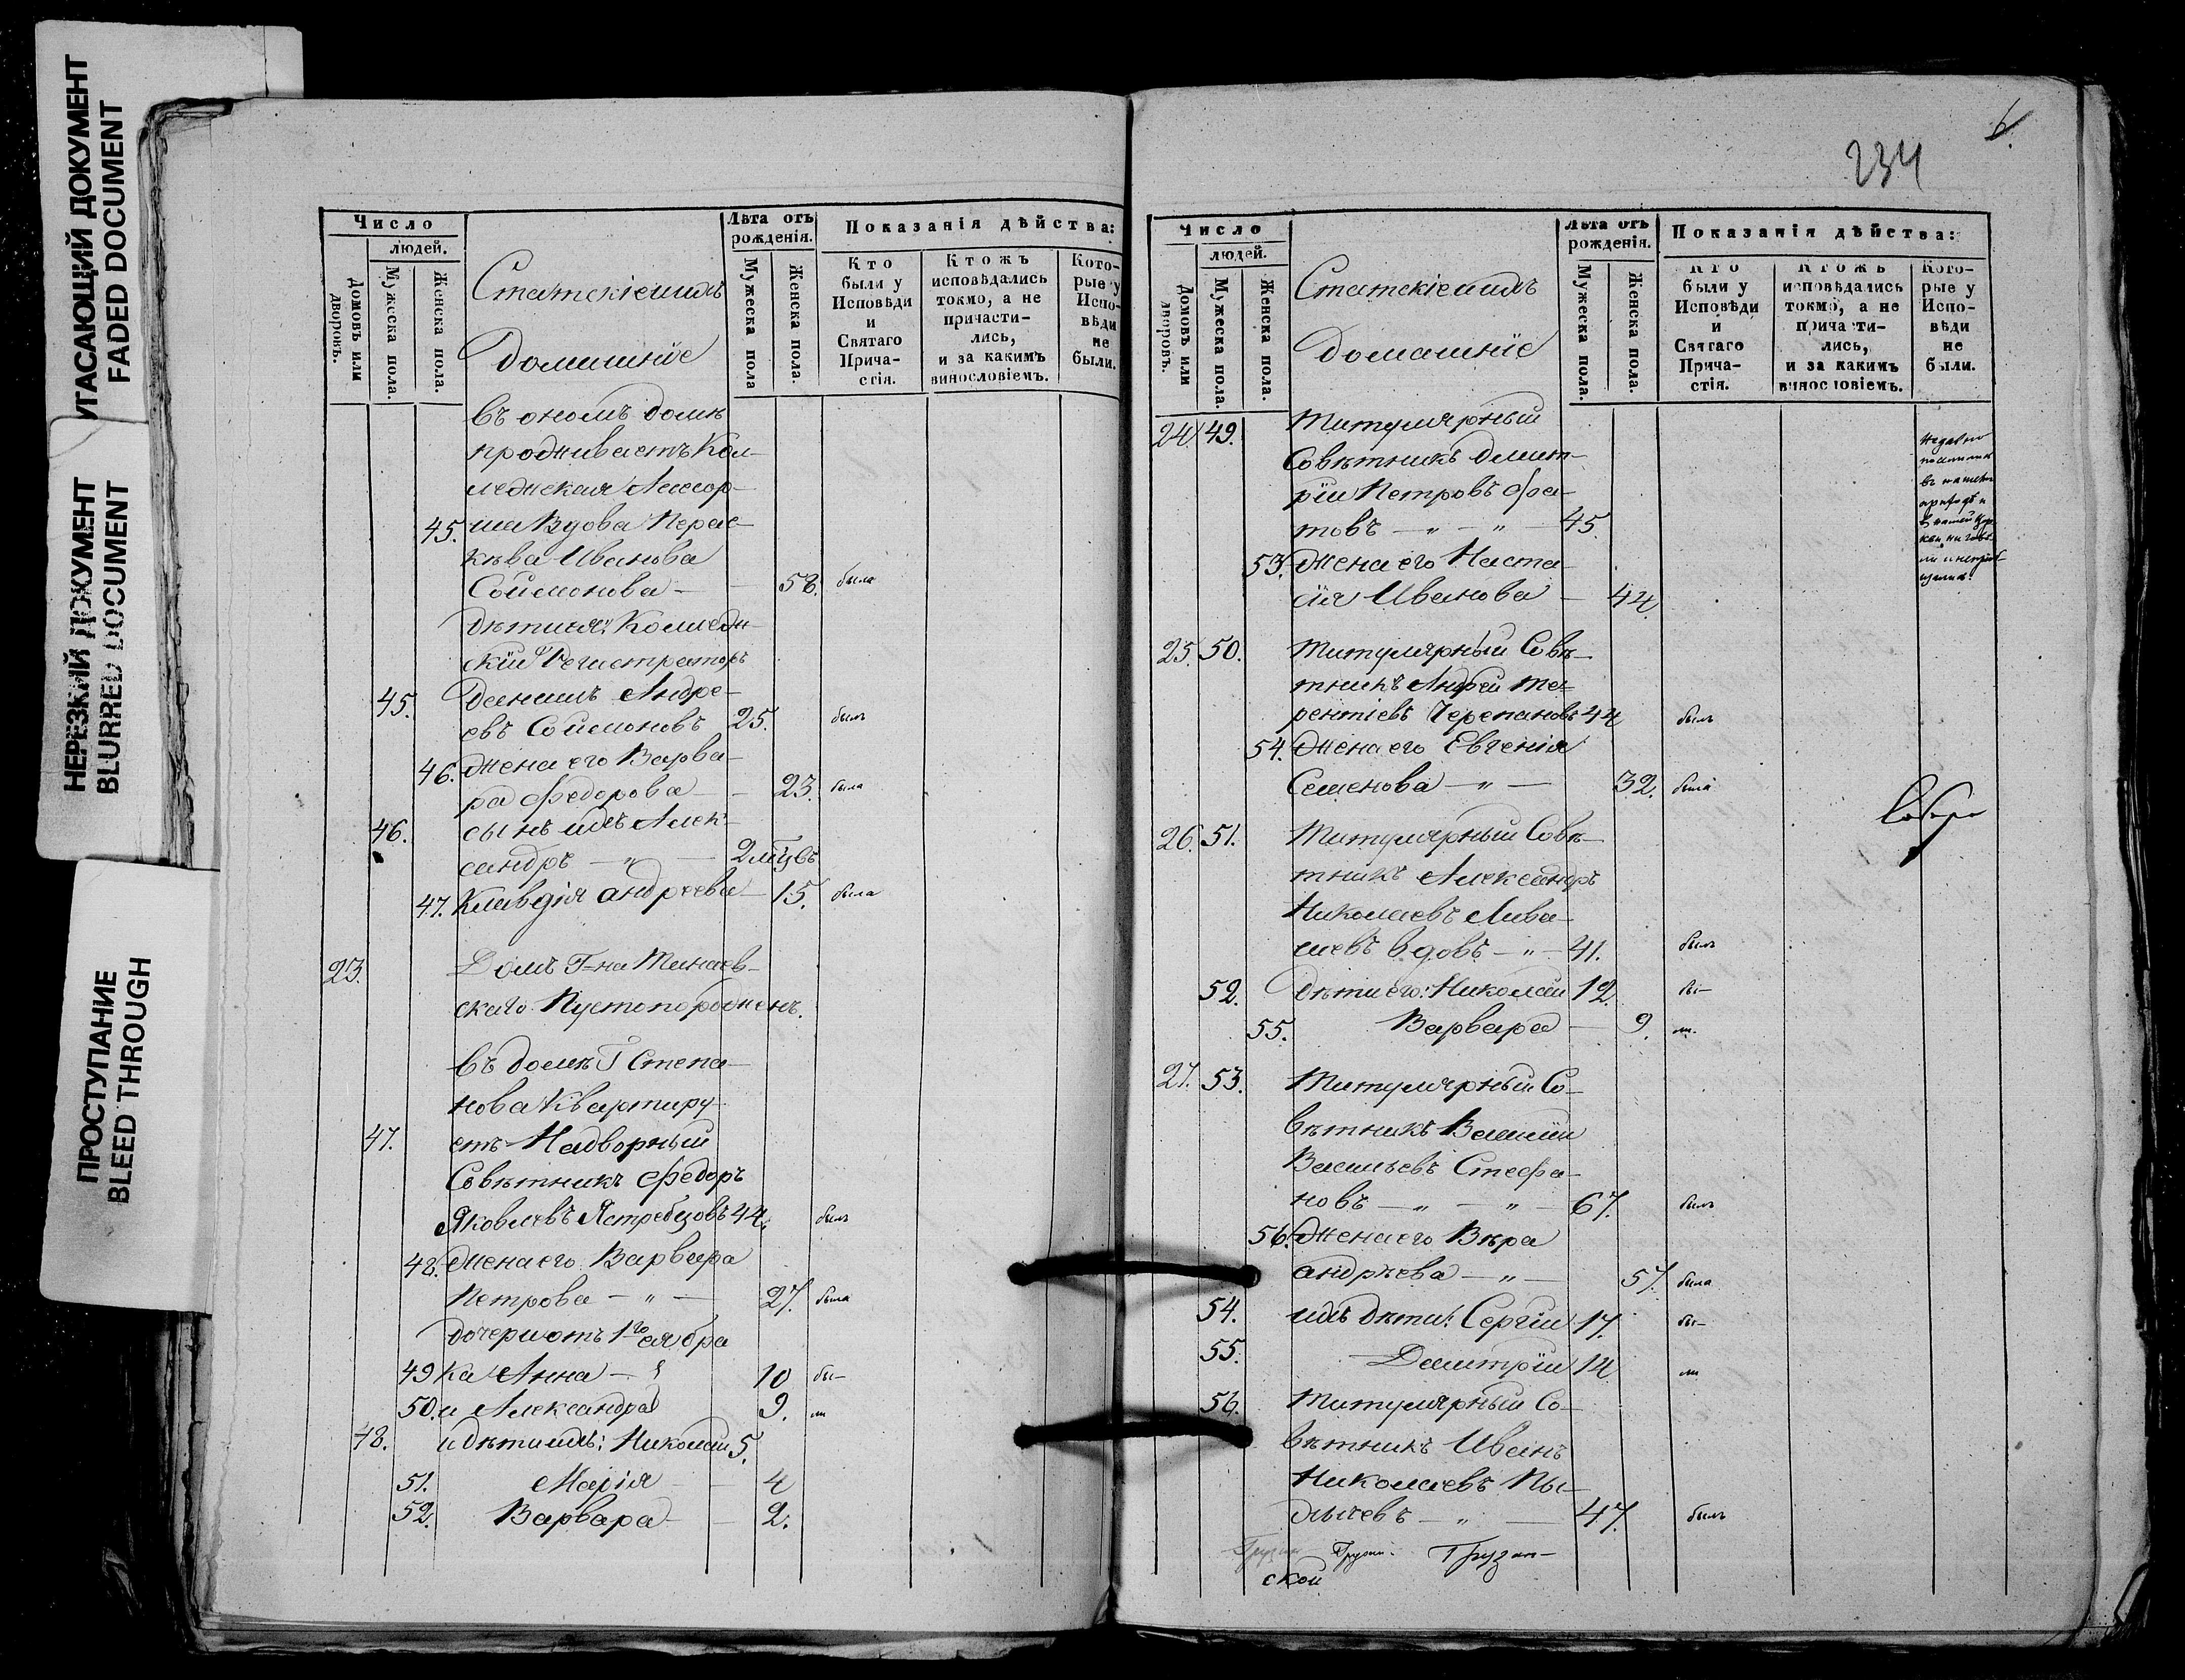 УГАСАЮЩИЙ ДОКУМЕНТ
FADED DOCUMENT
НЕРЕЗКИЙ ДОКУМЕНТ
BLURRED DOCUMENT
ПРОСТУПАНИЕ
BLEED THROUGH
Число
людей.
Домовъ или дворовъ.
Мужеска пола.
Женска пола.
Статскіе и ихъ
домашніе
Лѣта отъ рожденія.
Мужеска пола
Женска пола.
Показанія дѣйства:
Кто были у Исповѣди и Святаго Причастія.
Ктожъ исповѣдались токмо, а не причастились, и за какимъ винословіемъ.
Которые у Исповѣди не были.
въ ономъ домѣ
проживаетъ Кол-
лежская Ассесор-
45. ша Вдова Парас-
кѣва Иванова
Соймонова — 58. была
дѣти ея: Коллеж-
скій Регистраторъ
45. Даніилъ Андре-
евъ Соймоновъ 25. былъ
46. жена его Варва-
ра Федорова — 23. была
46. сынъ ихъ Алек-
сандръ — „ — 2 мѣцвъ
47. Клавдія Андреева 15. была
23. Домъ Г-на Минаев-
скаго Пустопорожненъ.
въ домѣ Г Степа-
нова Квартиру-
47. етъ Надворный
Совѣтникъ Федоръ
Яковлевъ Ястребцовъ 44. былъ
48. жена его Варвара
Петрова — „ — 27. была
дочери отъ 1го брa
49 ка Анна — 10 бы-
50. и Александра 9. ли
48. и дѣти ихъ: Николай 5.
51. Марія — 4
52. Варвара — 2.
6.
234
Число
людей.
Домовъ или дворовъ.
Мужеска пола.
Женска пола.
Статскіе и ихъ
домашніе
Лѣта отъ рожденія.
Мужеска пола.
Женска пола.
Показанія дѣйства:
Кто были у Исповѣди и Святаго Причастія.
Ктожъ исповѣдались токмо, а не причастились, и за какимъ винословіемъ.
Которые у Исповѣди не были.
24. 49. Титулярный
Совѣтникъ Дмит-
рій Петровъ Фа-
товъ — „ — „ — 45.
53. жена его Наста-
сія Иванова — 44.
Недавно
въ нашемъ
приходѣ и
въ нашей Цер-
кви
25. 50. Титулярный Совѣ-
тникъ Андрей Те-
рентіевъ Черепановъ 44 былъ
54. жена его Евгенія
Семенова — „ — 32. была
26. 51. Титулярный Совѣ-
тникъ Александръ
Николаевъ Лива-
шевъ вдовъ — „ — 41. былъ
52. дѣти его: Николай 12. бы-
55. Варвара — 9. ли.
27. 53. Титулярный Со-
вѣтникъ Василій
Васильевъ Стефа-
новъ — „ — „ — 67. былъ
56. жена его Вѣра
Андрѣева — „ — 57. была
54. ихъ дѣти: Сергій 17. бы-
55. Димитрій 14 ли
56. Титулярный Со-
вѣтникъ Иванъ
Николаевъ Пы-
жычевъ — „ — 47. былъ
Грузин- Грузин- Грузин-
ской